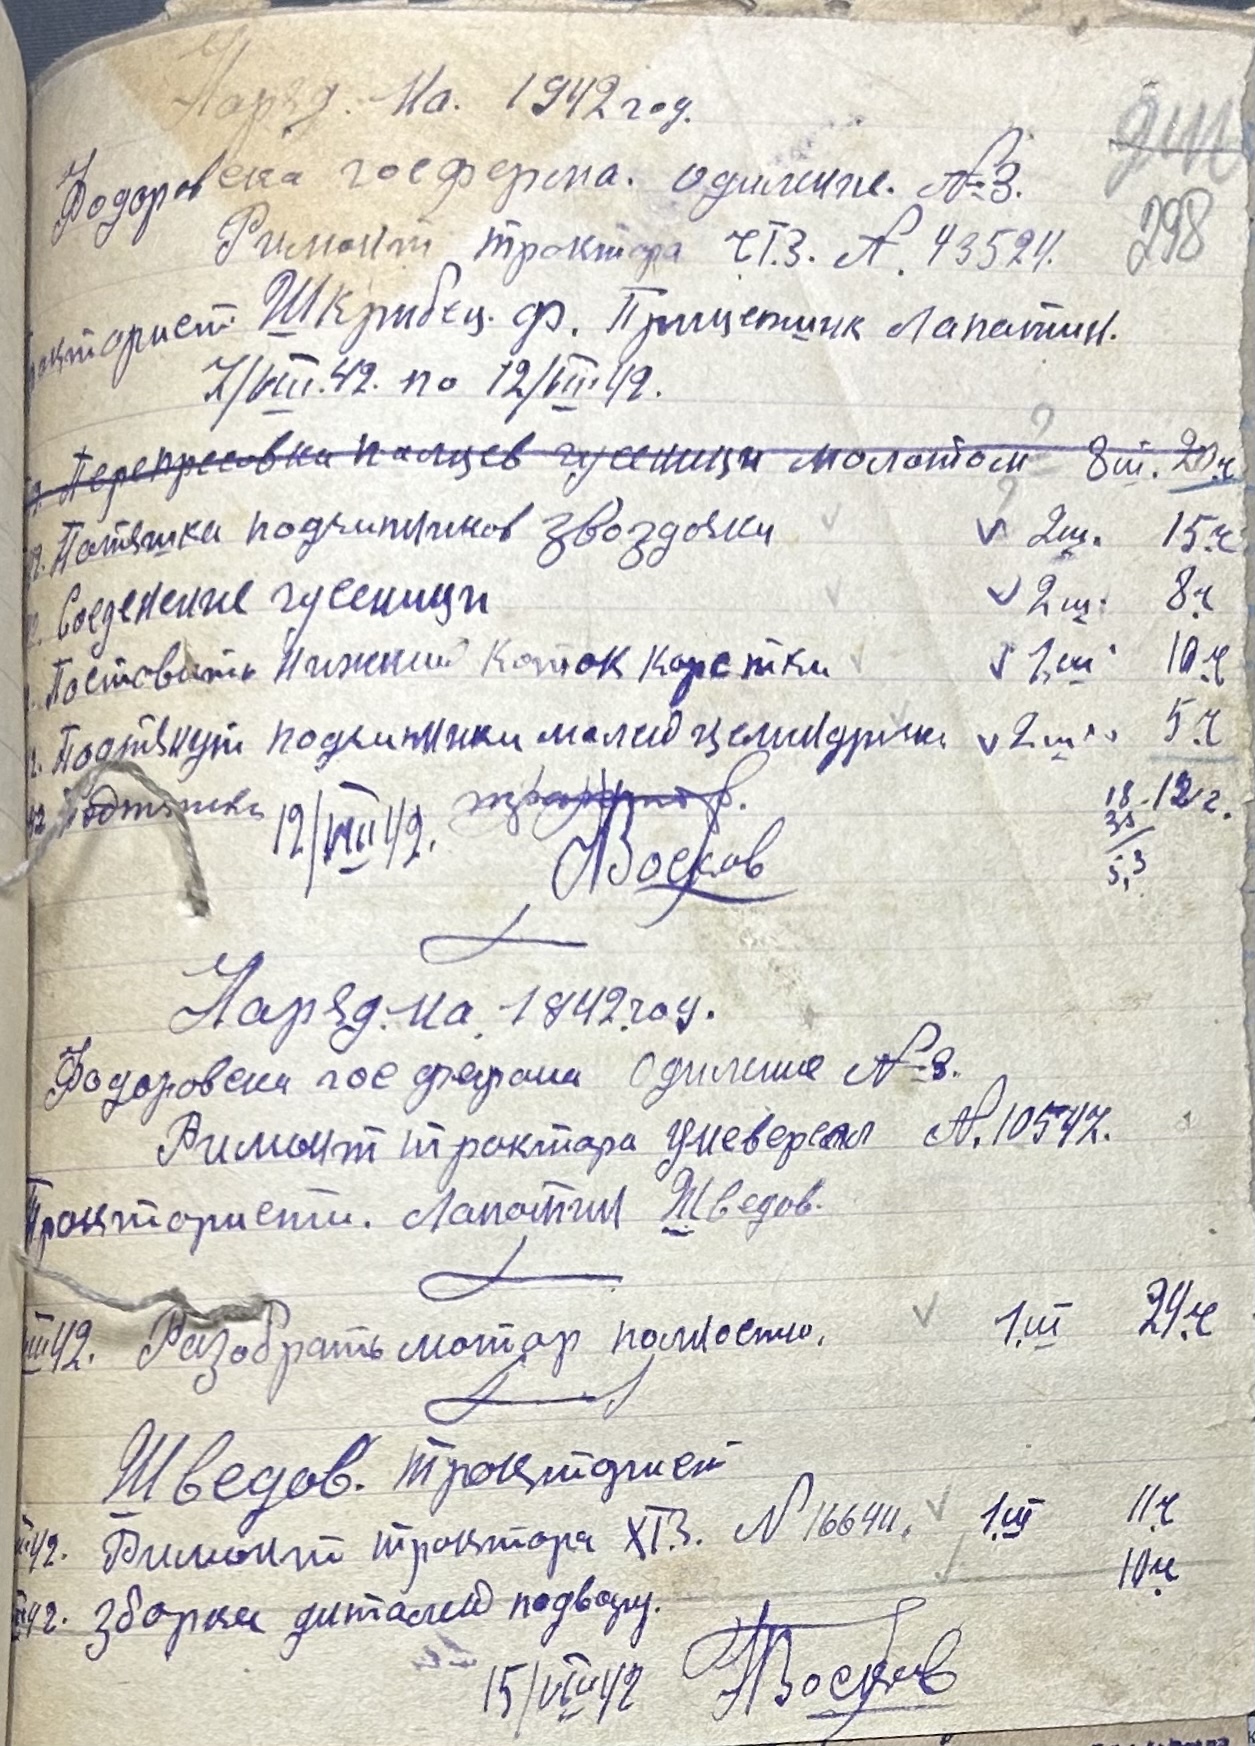 Наряд. На. 1942 год.
Фодоровска госферма. одиление. №3.
298
Римонт трактора ЧТЗ. №. 43524.
тракторист Шкрибец. Ф. Прицепщик Лапатин.
7/VIII.42. по 12/VIII.42.
Перепресовка палцев гусеници молотом 8ш. 20.ч
Патяшка подшипников звоздочки 2ш. 15.ч
Соеденение гусеници 2ш. 8.ч
Постовить нижний каток коретки 1ш 10.ч
Подтянут подшипники малей целиндрички 2ш. 5.ч
Подтяшка 12/VIII42. 18 - 12 г.
Восков 5,3
Наряд. На. 1842 год.
Фодоровска гос ферма Одиление №3.
Римонт трактора Универсал №. 10547.
Тракторист. Лапатин Шведов.
VIII42. Разобрать мотор полностю. 1.ш 24.ч
Шведов. тракторист
42. Римонт трактора ХТЗ. № 1664 1.ш 11.ч
42. Зборка диталей подвозу. 10.ч
15/VIII42 Восков